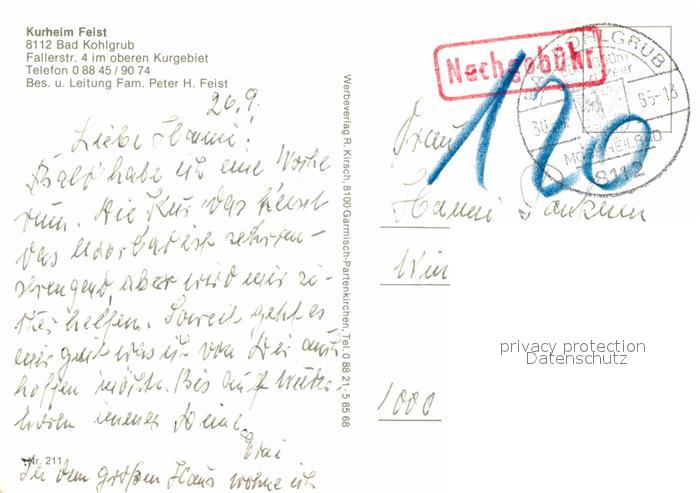 Kurheim Feist
8112 Bad Kohlgrub
Fallerstr. 4 im oberen Kurgebiet
Telefon 0 88 45 / 90 74
Bes. u. Leitung Fam. Peter H. Feist
26.9.
Liebe Hanni!
Bald habe ich eine Woche
rum. Die Kur das heisst
das Moorbad ist sehr an-
strengend, aber wird mir si-
cher helfen. Soweit geht es
mir gut was ich von Dir auch
hoffen möchte. Bis auf Wieder-
hören immer Deine
In dem großen Haus wohne ich
Nr. 211
Werbeverlag R. Kirsch, 8100 Garmisch-Partenkirchen, Tel. 0 88 21-5 85 68
Nachgebühr
120
KOHLGRUB
85-18
MOORHEILBAD
8112
Frau
Hanni
Wien
1000
privacy protection
Datenschutz